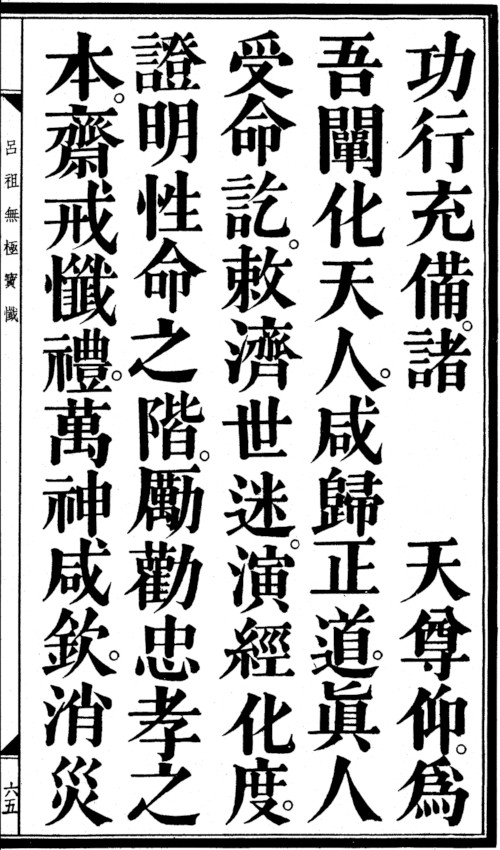 功行充備。諸　　天尊仰。爲
吾闡化天人。咸歸正道。眞人
受命訖。敕濟世迷。演經化度。
證明性命之階。勵勸忠孝之
本。齋戒懺禮。萬神咸欽。消災
呂祖無極寶懺
六五